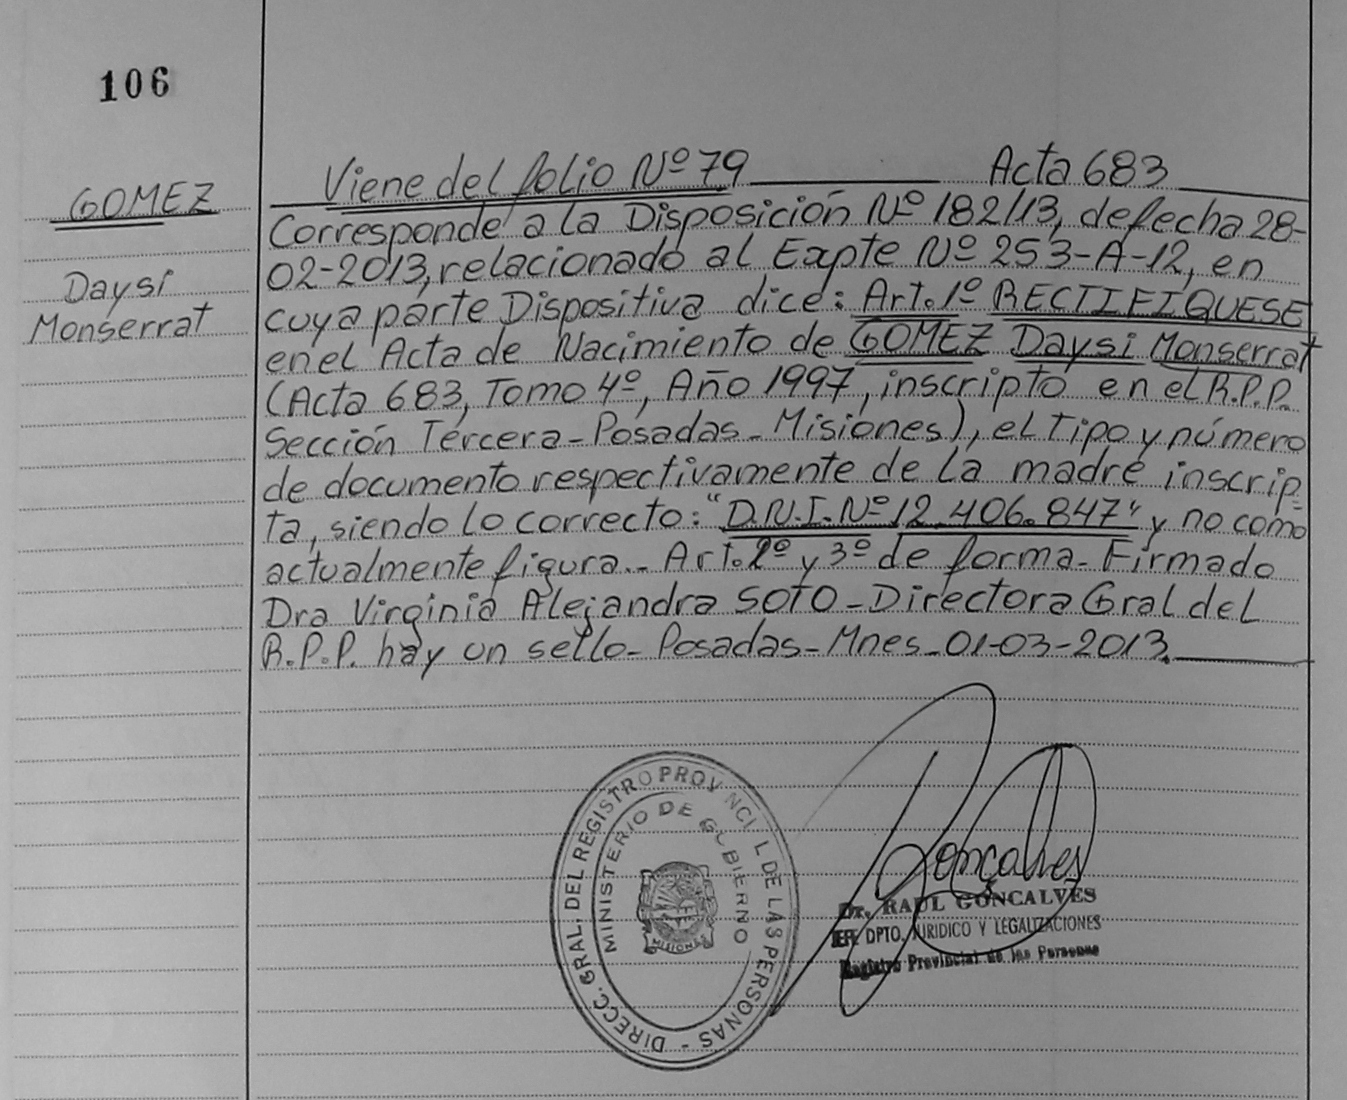 106
GOMEZ
Daysi
Monserrat
Viene del folio Nº 79 Acta 683
Corresponde a la Disposición Nº 182/13, de fecha 28-
02-2013, relacionado al Expte Nº 253-A-12, en
cuya parte Dispositiva dice: Art. 1º RECTIFIQUESE
en el Acta de Nacimiento de GOMEZ Daysi Monserrat
(Acta 683, Tomo 4º, Año 1997, inscripto en el R.P.P.
Sección Tercera-Posadas-Misiones), el Tipo y número
de documento respectivamente de la madre inscrip=
ta, siendo lo correcto: "D.N.I. Nº 12.406.847" y no como
actualmente figura.. Art. 2º y 3º de forma- Firmado
Dra Virginia Alejandra SOTO-Directora Gral del
R.P.P. hay un sello-Posadas-Mnes-01-03-2013.
DIRECC. GRAL. DEL REGISTRO PROVINCI L DE LAS PERSONAS -
MINISTERIO DE GOBIERNO
MISIONES
Goncalves
Dr. RAUL GONCALVES
JEFE DPTO. JURIDICO Y LEGALIZACIONES
Registro Provincial de las Personas